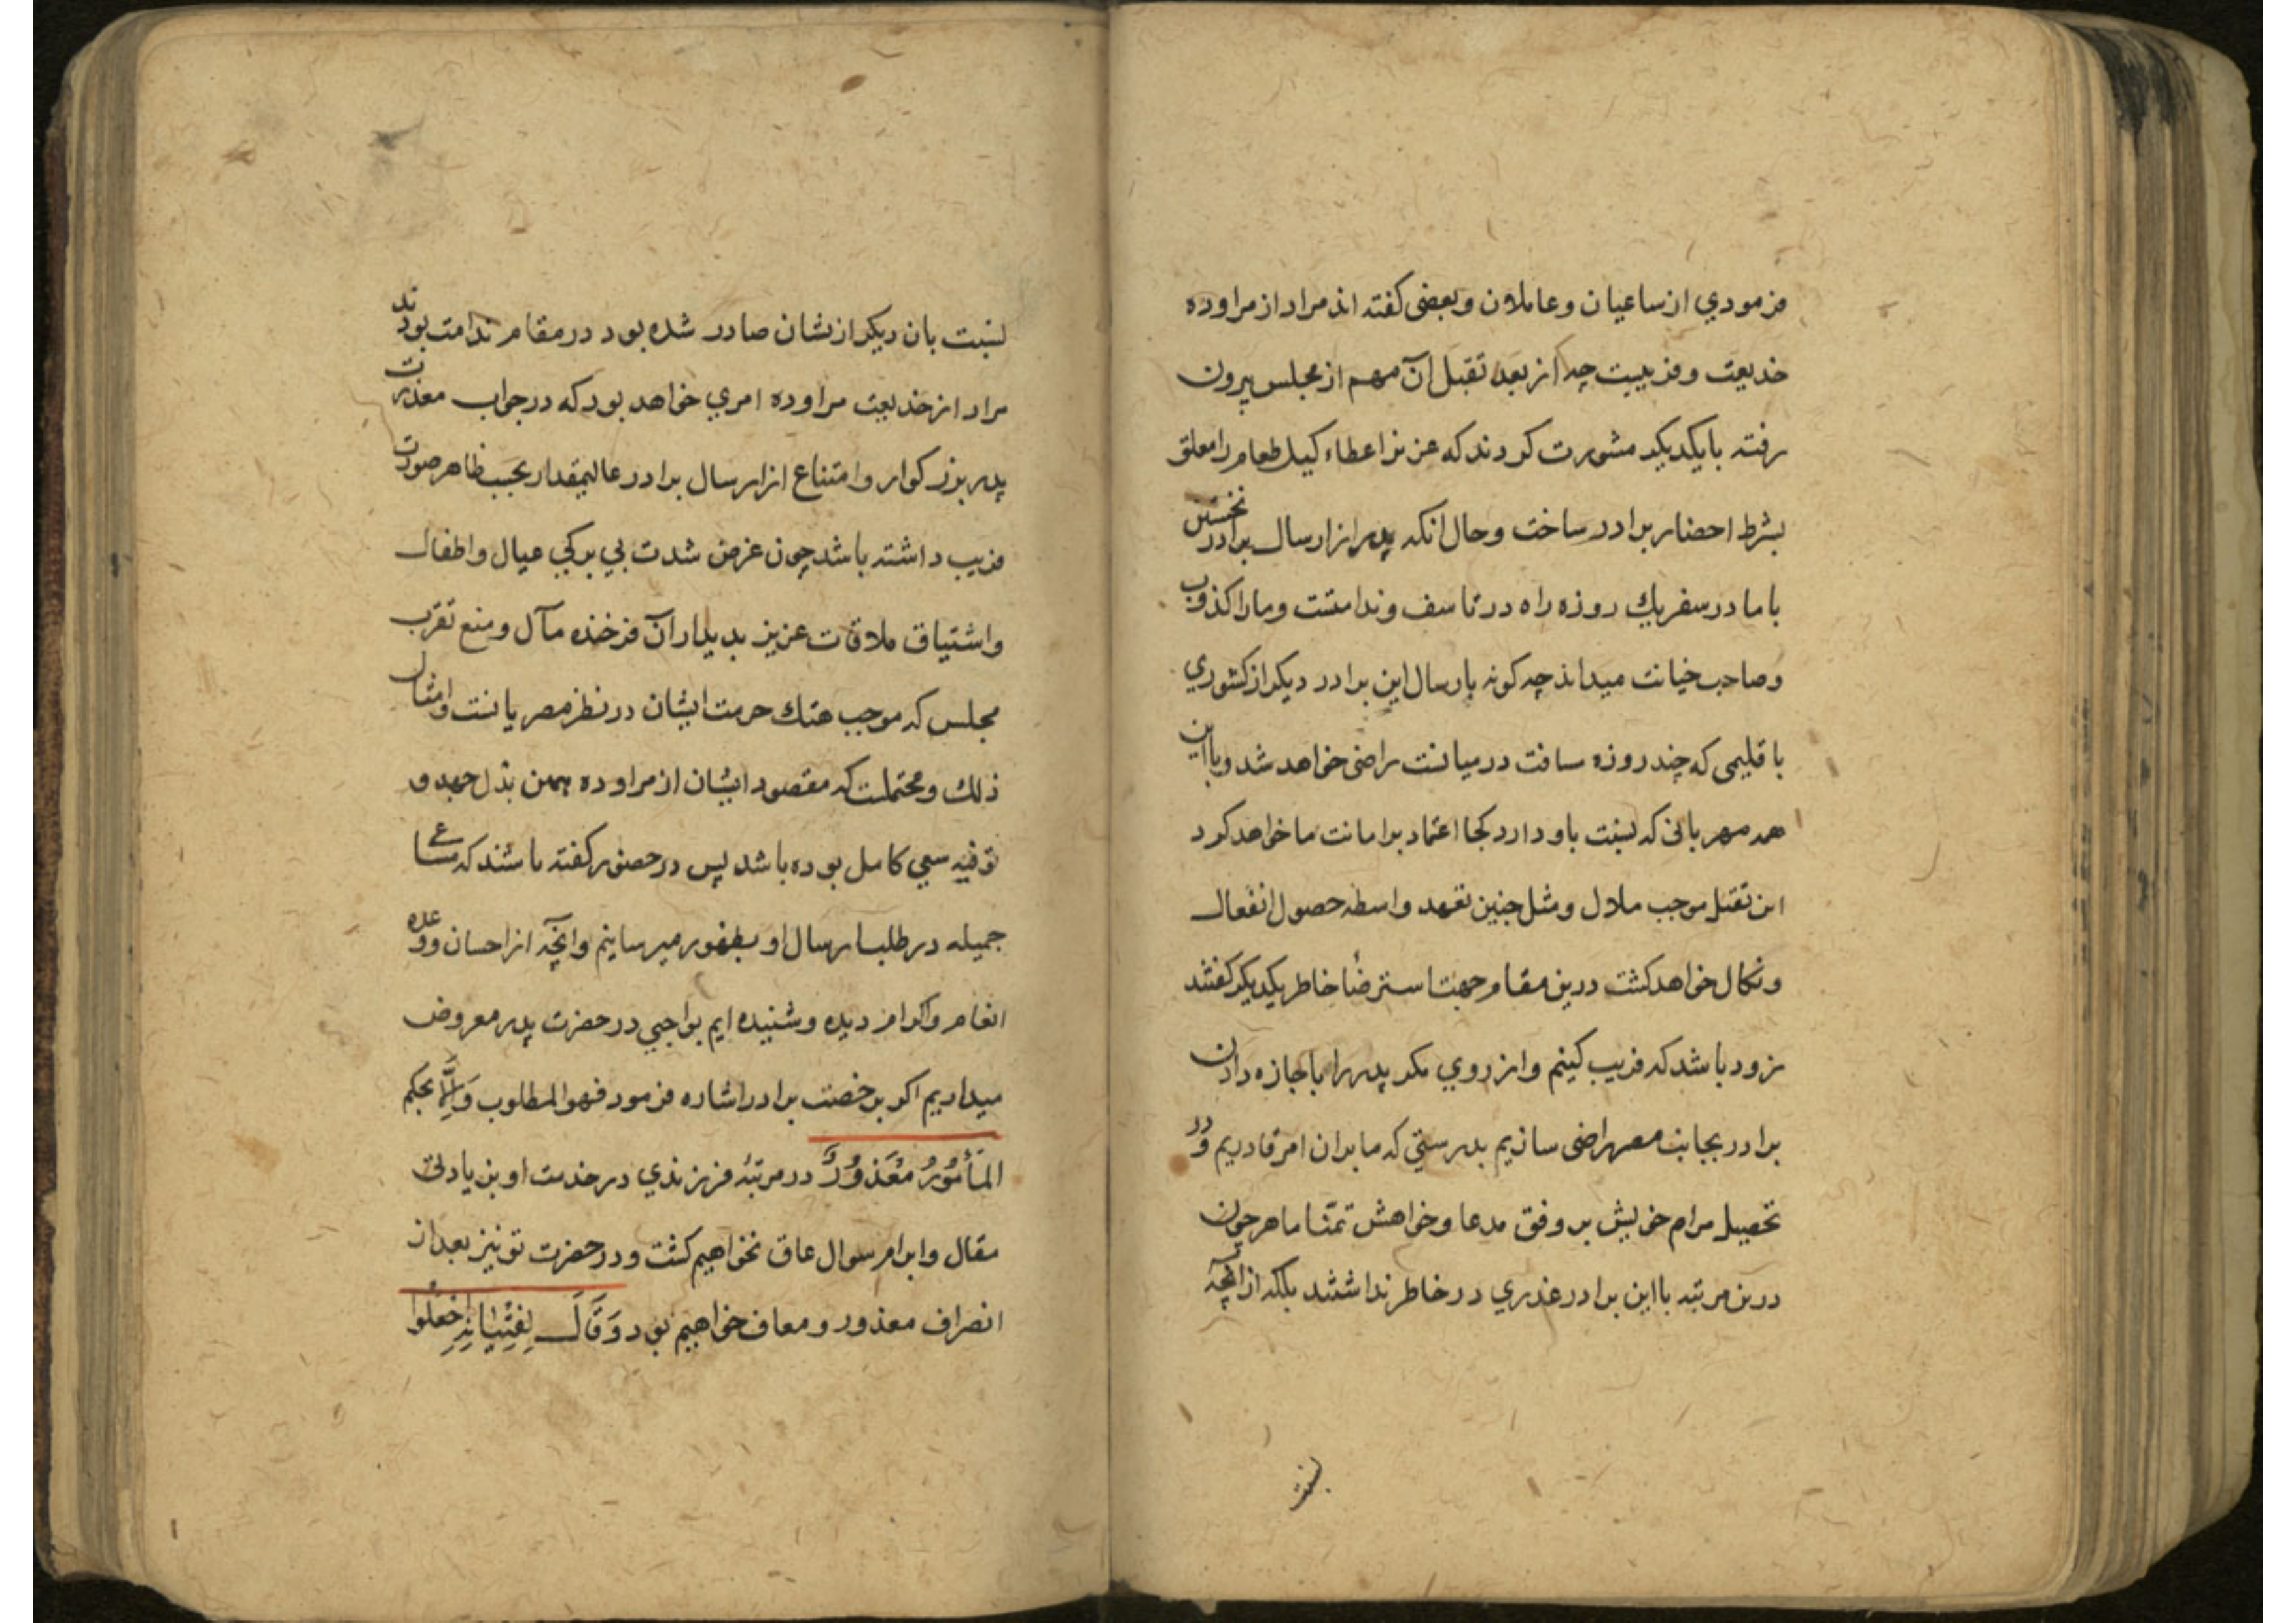 فرمودي از ساعیان و عاملان و بعضی کفته اند مراد از مراوده
خدیعت و فریبیست چه از بعد تقبل آن مهم از مجلس بیرون
رفته بایکدیکر مشورت کردند که عزیز اعطاء کیل طعام را معلق
بشرط احضار برادر ساخت و حال انکه پدر از ارسال برادر نخستین
با ما در سفر یك روزه راه در تاسف و ندامتست و مارا کذوب
و صاحب خیانت میداند چه کونه بارسال این برادر دیکر از کشوري
باقلیمی که چند روزه مسافت در میانست راضی خواهد شد و با این
همه مهربانی که نسبت باو دارد کجا اعتماد بر امانت ما خواهد کرد
این تقبل موجب ملال و مثل چنین تعهد واسطه حصول انفعال
و نکال خواهد کشت درین مقام جهت استرضأ خاطر یکدیکر کفتند
زود باشد که فریب کنیم و از روي مکر پدر را باجازه دادن
برادر بجانب مصر راضی سازیم بدرستي که ما بران امر قادریم و در
تحصیل مرام خویش بر وفق مدعا و خواهش تمنا ماهر چون
درین مرتبه با این برادر غدري در خاطر نداشتند بلکه از انچه
نسبت
نسبت بان دیکر ازنشان صادر شده بود در مقام ندامت بودند
مراد از خدیعت مراوده امري خواهد بود که در جواب معذرت
پدر بزرکوار و امتناع از ارسال برادر عالیمقدار بحسب ظاهر صورت
فریب داشته باشد چون عرض شدت بي برکي عیال و اطفال
و اشتیاق ملاقات عزیز بدیدار آن فرخنده مآل و منع تقرب
مجلس که موجب هتك حرمت ایشان در نظر مصریانست و امثال
ذلك و محتملست که مقصود ایشان از مراوده همین بذل جهد و
توفیه سعي کامل بوده باشد پس در حضور کفته باشند که مساعي
جمیله در طلب ارسال او بظهور میرسانیم و انچه از احسان و وعده
انعام و اکرام دیده و شنیده ایم بواجبي در حضرت پدر معروض
میداریم اکر برخصت برادر اشاره فرمود فهو المطلوب وَ اِلَّا بحکم
المَأمُورُ مَعْذُورٌ در مرتبۀ فرزندي در خدمت او بزیادتی
مقال و ابرام سوال عاق نخواهیم کشت و در حضرت تو نیز بعد از
انصراف معذور و معاف خواهیم بود وَ قَالَ لِفِتْیَانِهِ اجْعَلُوا